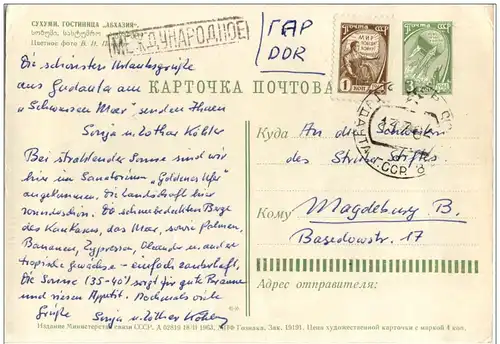 СУХУМИ. ГОСТИНИЦА „АБХАЗИЯ".
სოხუმი, სასტუმრო
Цветное фото В. П.
МЕЖДУНАРОДНОЕ
ГДР
DDR
МИР
СССР
1 КОП
КАРТОЧКА ПОЧТОВАЯ
Die schönsten Urlaubsgrüße
aus Gudauta am
„Schwarzen Meer" senden Ihnen
Sonja u. Lothar Köhler
Bei strahlender Sonne sind wir
hier im Sanatorium „Goldenes Ufer"
angekommen. Die Landschaft hier
wunderschön. Die schneebedeckten Berge
des Kaukasus, das Meer, sowie Palmen,
Bananen, Zypressen, Oleander u. andere
tropische Gewächse – einfach zauberhaft.
Die Sonne (35-40°) sorgt für gute Bräune
und riesen Appetit. Nochmals viele
Grüße Sonja u. Lothar Köhler
Куда An die Schwestern
des Stifts
Кому Magdeburg B.
Basedowstr. 17
Адрес отправителя:
Издание Министерства связи СССР. 1963. МПФ Гознака. Зак. 19191. Цена художественной карточки с маркой 4 коп.